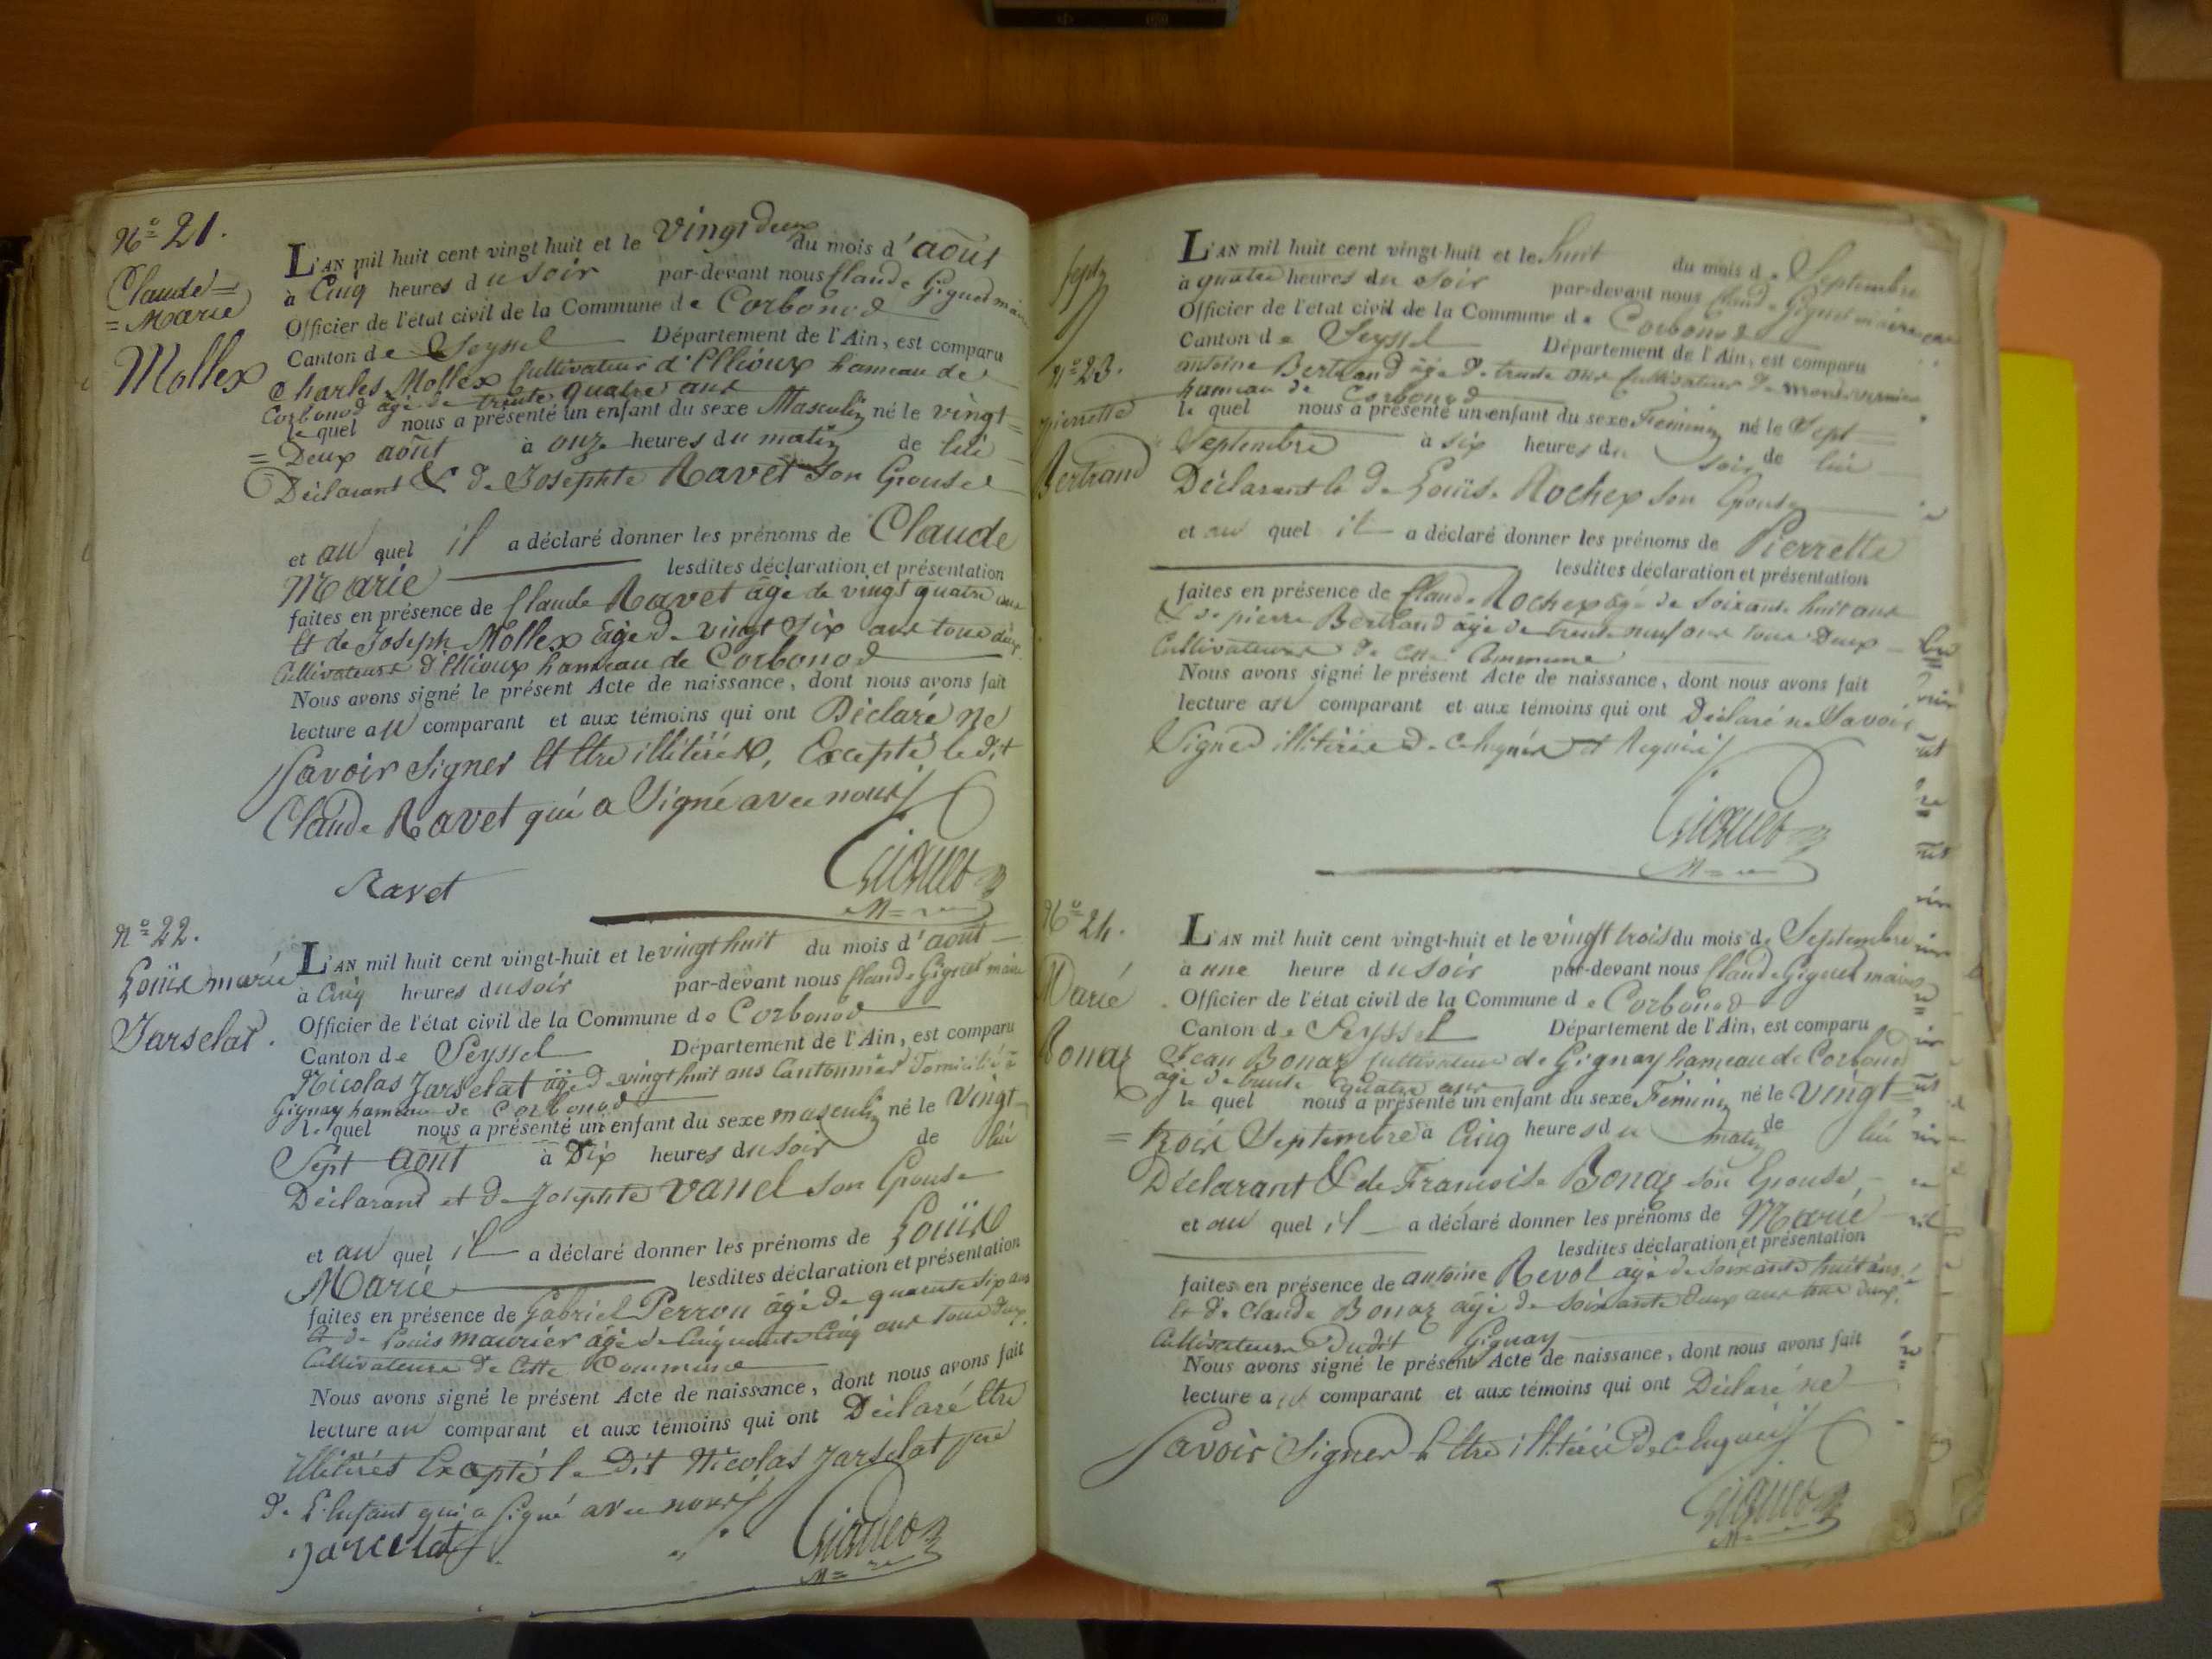 N.º 21.
Claude =
= Marie
Mollex
L'AN mil huit cent vingt huit et le vingt deux du mois d'août
à Cinq heures du soir par-devant nous Claude Giguet maire
Officier de l'état civil de la Commune de Corbonod
Canton de Seyssel Département de l'Ain, est comparu
Charles Mollex Cultivateur d'Ellioux hameau de
Corbonod âgé de trente quatre ans
le quel nous a présenté un enfant du sexe Masculin né le vingt =
= Deux août à onze heures du matin de lui
Déclarant & de Josephte Ravet son Epouse
et au quel il a déclaré donner les prénoms de Claude
Marie lesdites déclaration et présentation
faites en présence de Claude Ravet âgé de vingt quatre ans
Et de Joseph Mollex âgé de vingt six ans tous deux
Cultivateurs d'Ellioux hameau de Corbonod
Nous avons signé le présent Acte de naissance, dont nous avons fait
lecture au comparant et aux témoins qui ont Déclaré ne
savoir signer Et Etre illitérés, Excepté le dit
Claude Ravet qui a Signé avec nous
Ravet Giguet
N.º 22.
Louis marie
Jarselat.
L'AN mil huit cent vingt-huit et le vingt huit du mois d'août
à Cinq heures du soir par-devant nous Claude Giguet maire
Officier de l'état civil de la Commune de Corbonod
Canton de Seyssel Département de l'Ain, est comparu
Nicolas Jarselat âgé de vingt huit ans Cantonnier Domicilié à
Gignay hameau de Corbonod
le quel nous a présenté un enfant du sexe masculin né le Vingt
Sept août à Dix heures du soir de lui
Déclarant et de Josephte Vanel son Epouse
et au quel il a déclaré donner les prénoms de Louis
Marie lesdites déclaration et présentation
faites en présence de Gabriel Perrou âgé de quarante six ans
Et de Louis maurier âgé de Cinquante Cinq ans tous deux
Cultivateurs de Cette Commune
Nous avons signé le présent Acte de naissance, dont nous avons fait
lecture au comparant et aux témoins qui ont Déclaré Etre
illitérés Excepté le Dit Nicolas Jarselat pere
de L'enfant qui a signé avec nous
Jarcelat Giguet
Sept
N.º 23.
pierrette
Bertrand
L'AN mil huit cent vingt-huit et le huit du mois de Septembre
à quatre heures du soir par-devant nous Claude Giguet maire
Officier de l'état civil de la Commune de Corbonod
Canton de Seyssel Département de l'Ain, est comparu
antoine Bertrand âgé de trente ans Cultivateur de
hameau de Corbonod
le quel nous a présenté un enfant du sexe Féminin né le Sept
Septembre à six heures du soir de lui
Déclarant & de Louise Rochex son Epouse
et au quel il a déclaré donner les prénoms de Pierrette
lesdites déclaration et présentation
faites en présence de Claude Rochex âgé de soixante huit ans
& de pierre Bertrand âgé de trente neuf ans tous Deux
Cultivateurs de cette Commune
Nous avons signé le présent Acte de naissance, dont nous avons fait
lecture au comparant et aux témoins qui ont Déclaré ne Savoir
Signer de Ce Enquis et Requis
Giguet
N.º 24.
Marie
Bonaz
L'AN mil huit cent vingt-huit et le vingt trois du mois de Septembre
à une heure du soir par-devant nous Claude Giguet maire
Officier de l'état civil de la Commune de Corbonod
Canton de Seyssel Département de l'Ain, est comparu
Jean Bonaz Cultivateur de Gignay hameau de Corbonod
âgé de trente quatre ans
le quel nous a présenté un enfant du sexe Féminin né le Vingt =
= trois Septembre à Cinq heures du matin de lui
Déclarant & de Francoise Bonaz son Epouse
et au quel il a déclaré donner les prénoms de Marie
lesdites déclaration et présentation
faites en présence de antoine Revol âgé de soixante huit ans
Et de Claude Bonaz âgé de soixante deux ans tous deux
Cultivateurs Dudit Gignay
Nous avons signé le présent Acte de naissance, dont nous avons fait
lecture au comparant et aux témoins qui ont Déclaré ne
savoir Signer & Etre illitérés de Ce Enquis
Giguet